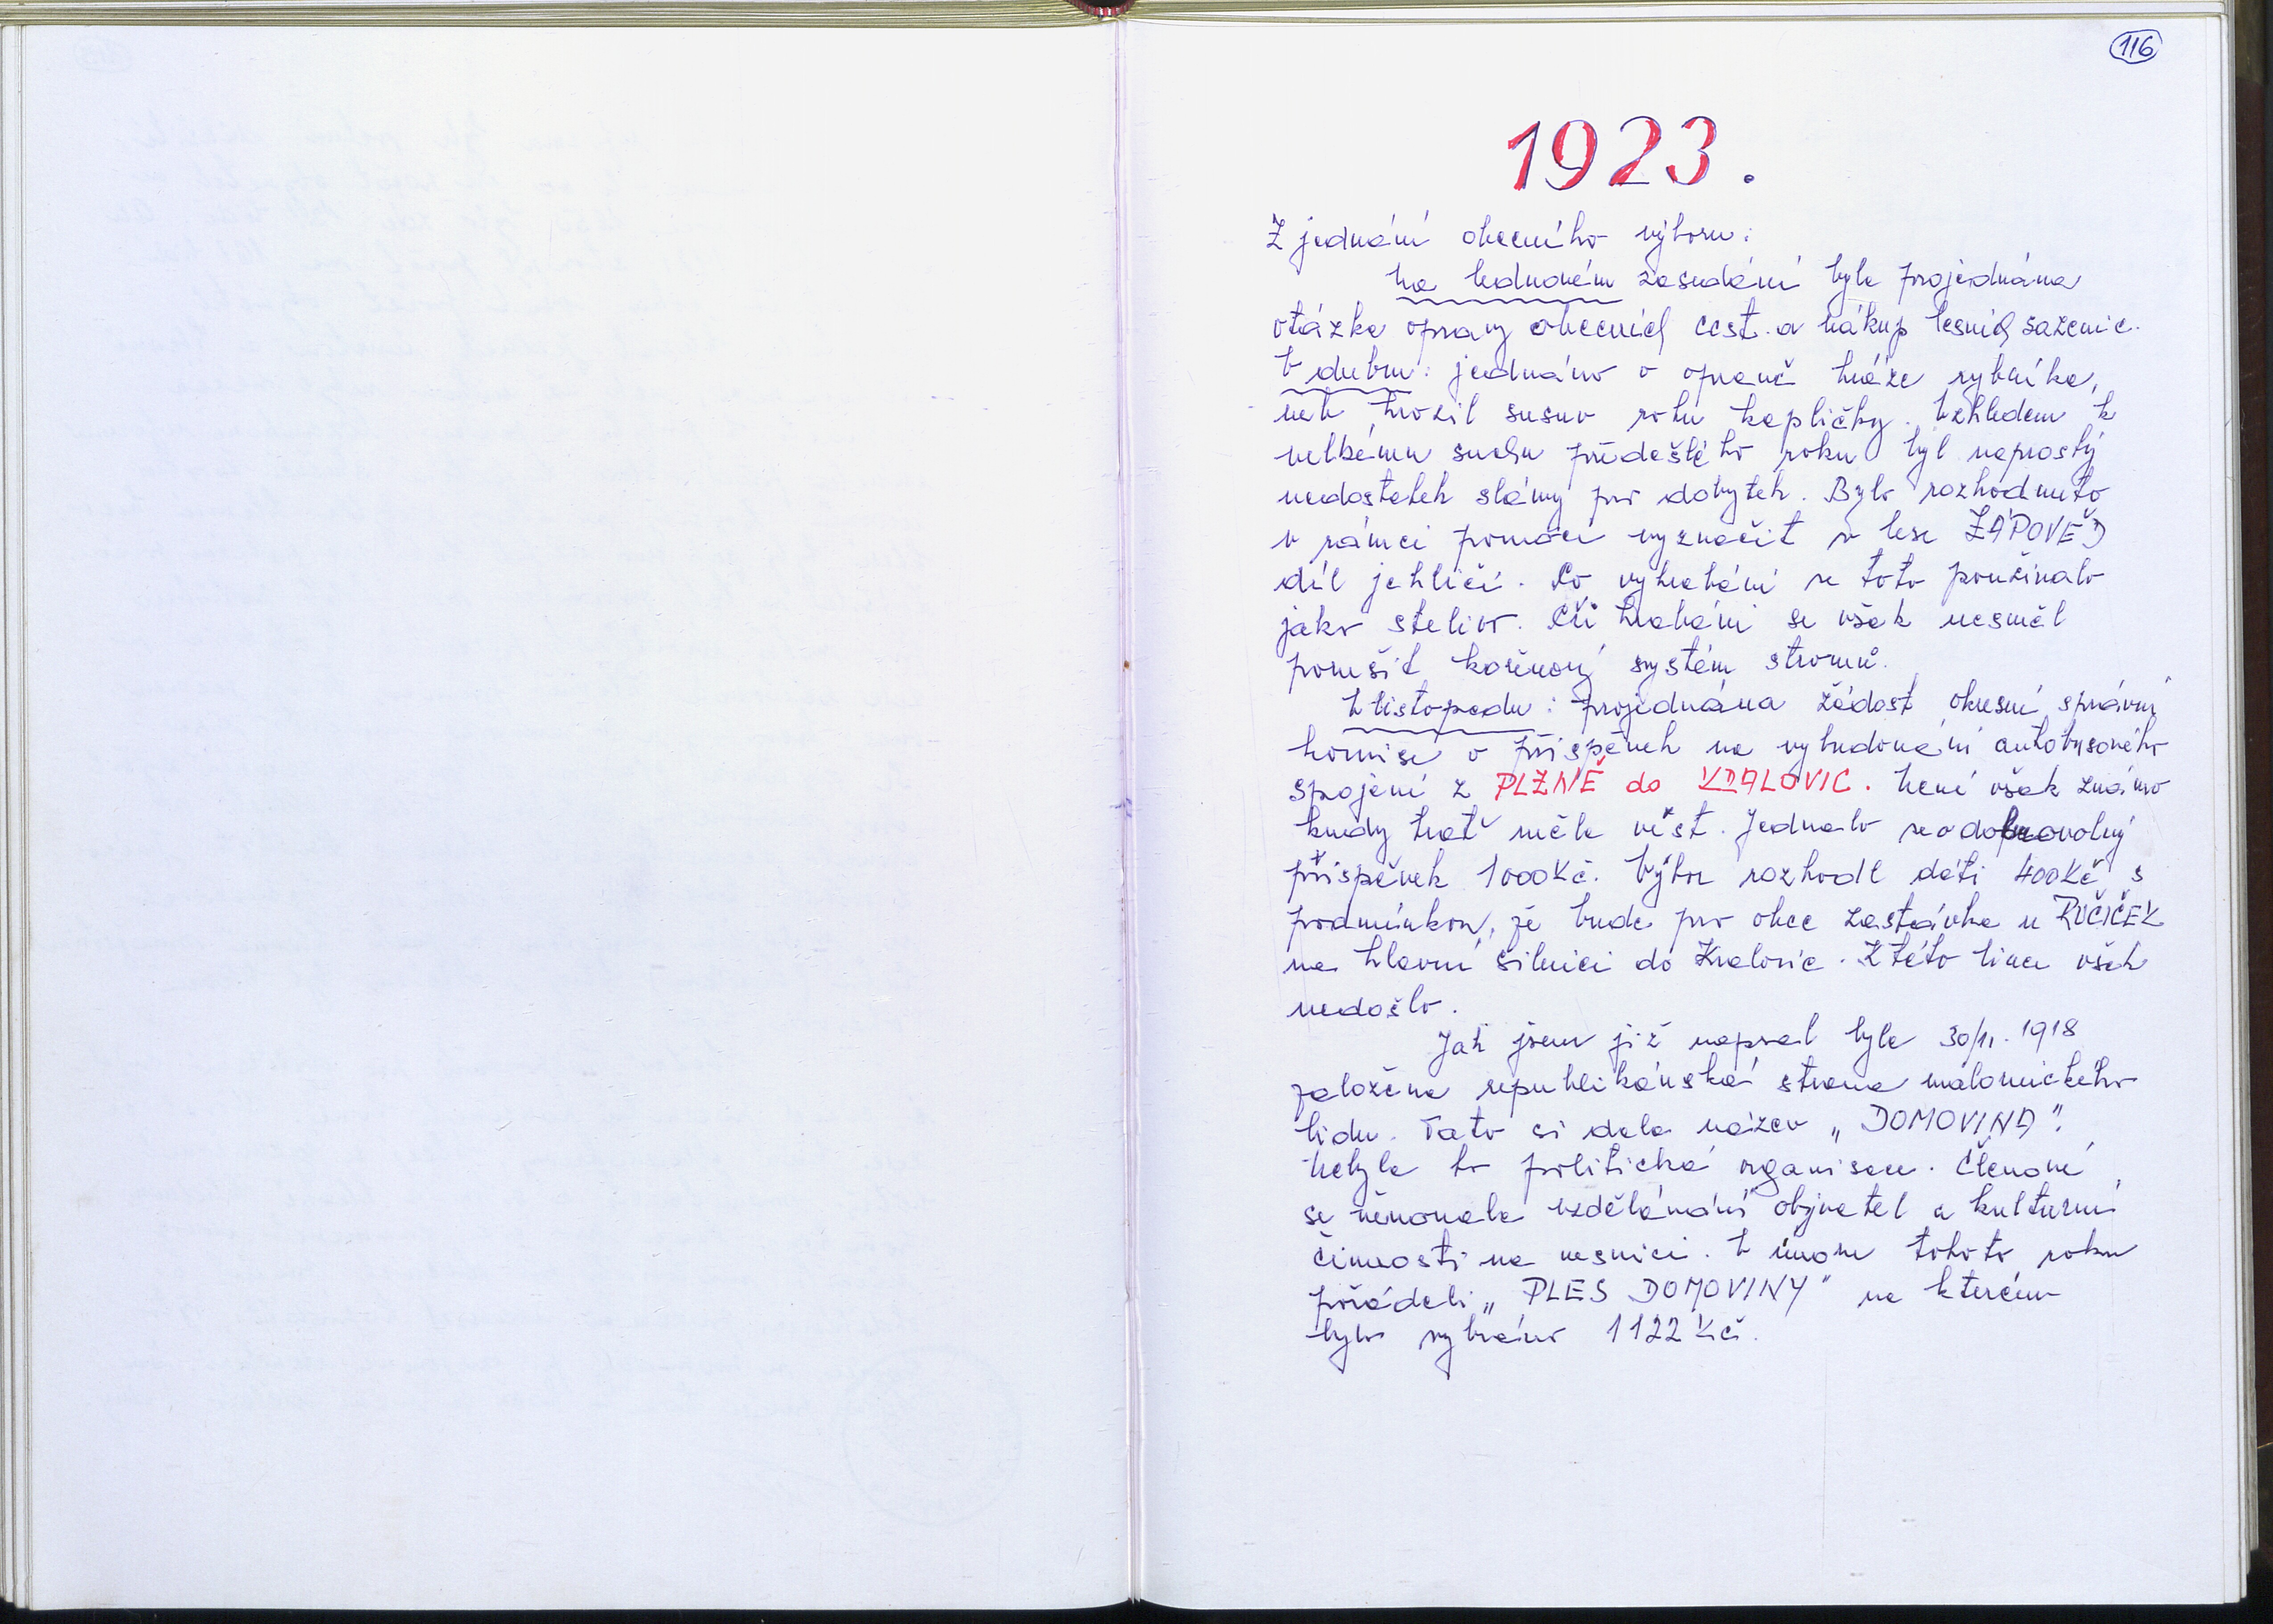 116
1923.
Z jednání obecního výboru:
Na lednovém zasedání byla projednána
otázka opravy obecních cest a nákup lesních sazenic.
V dubnu: jednáno o opravě hráze rybníka,
neb hrozil sesuv rohu kapličky. Vzhledem k
velkému suchu předešlého roku byl naprostý
nedostatek slámy pro dobytek. Bylo rozhodnuto
v rámci pomoci vyznačit v lese ZÁPOVĚĎ
díl jehličí. Po vyhrabání se toto používalo
jako stelivo. Při hrabání se však nesměl
porušit kořenový systém stromů.
V listopadu: projednána žádost okresní správní
komise o příspěvek na vybudování autobusového
spojení z PLZNĚ do KRALOVIC. Není však známo
kudy trať měla vést. Jednalo se o dobrovolný
příspěvek 1000Kč. Výbor rozhodl dáti 400Kč s
podmínkou, že bude pro obec zastávka u RŮČIČEK
na hlavní silnici do Kralovic. K této lince však
nedošlo.
Jak jsem již napsal byla 30/11. 1918
založena republikánská strana malorolnického
lidu. Tato si dala název „DOMOVINA".
Nebyla to politická organisace. Členové
se věnovala vzdělávání obyvatel a kulturní
činnosti na vesnici. V únoru tohoto roku
pořádali „PLES DOMOVINY" na kterém
bylo vybráno 1122 Kč.